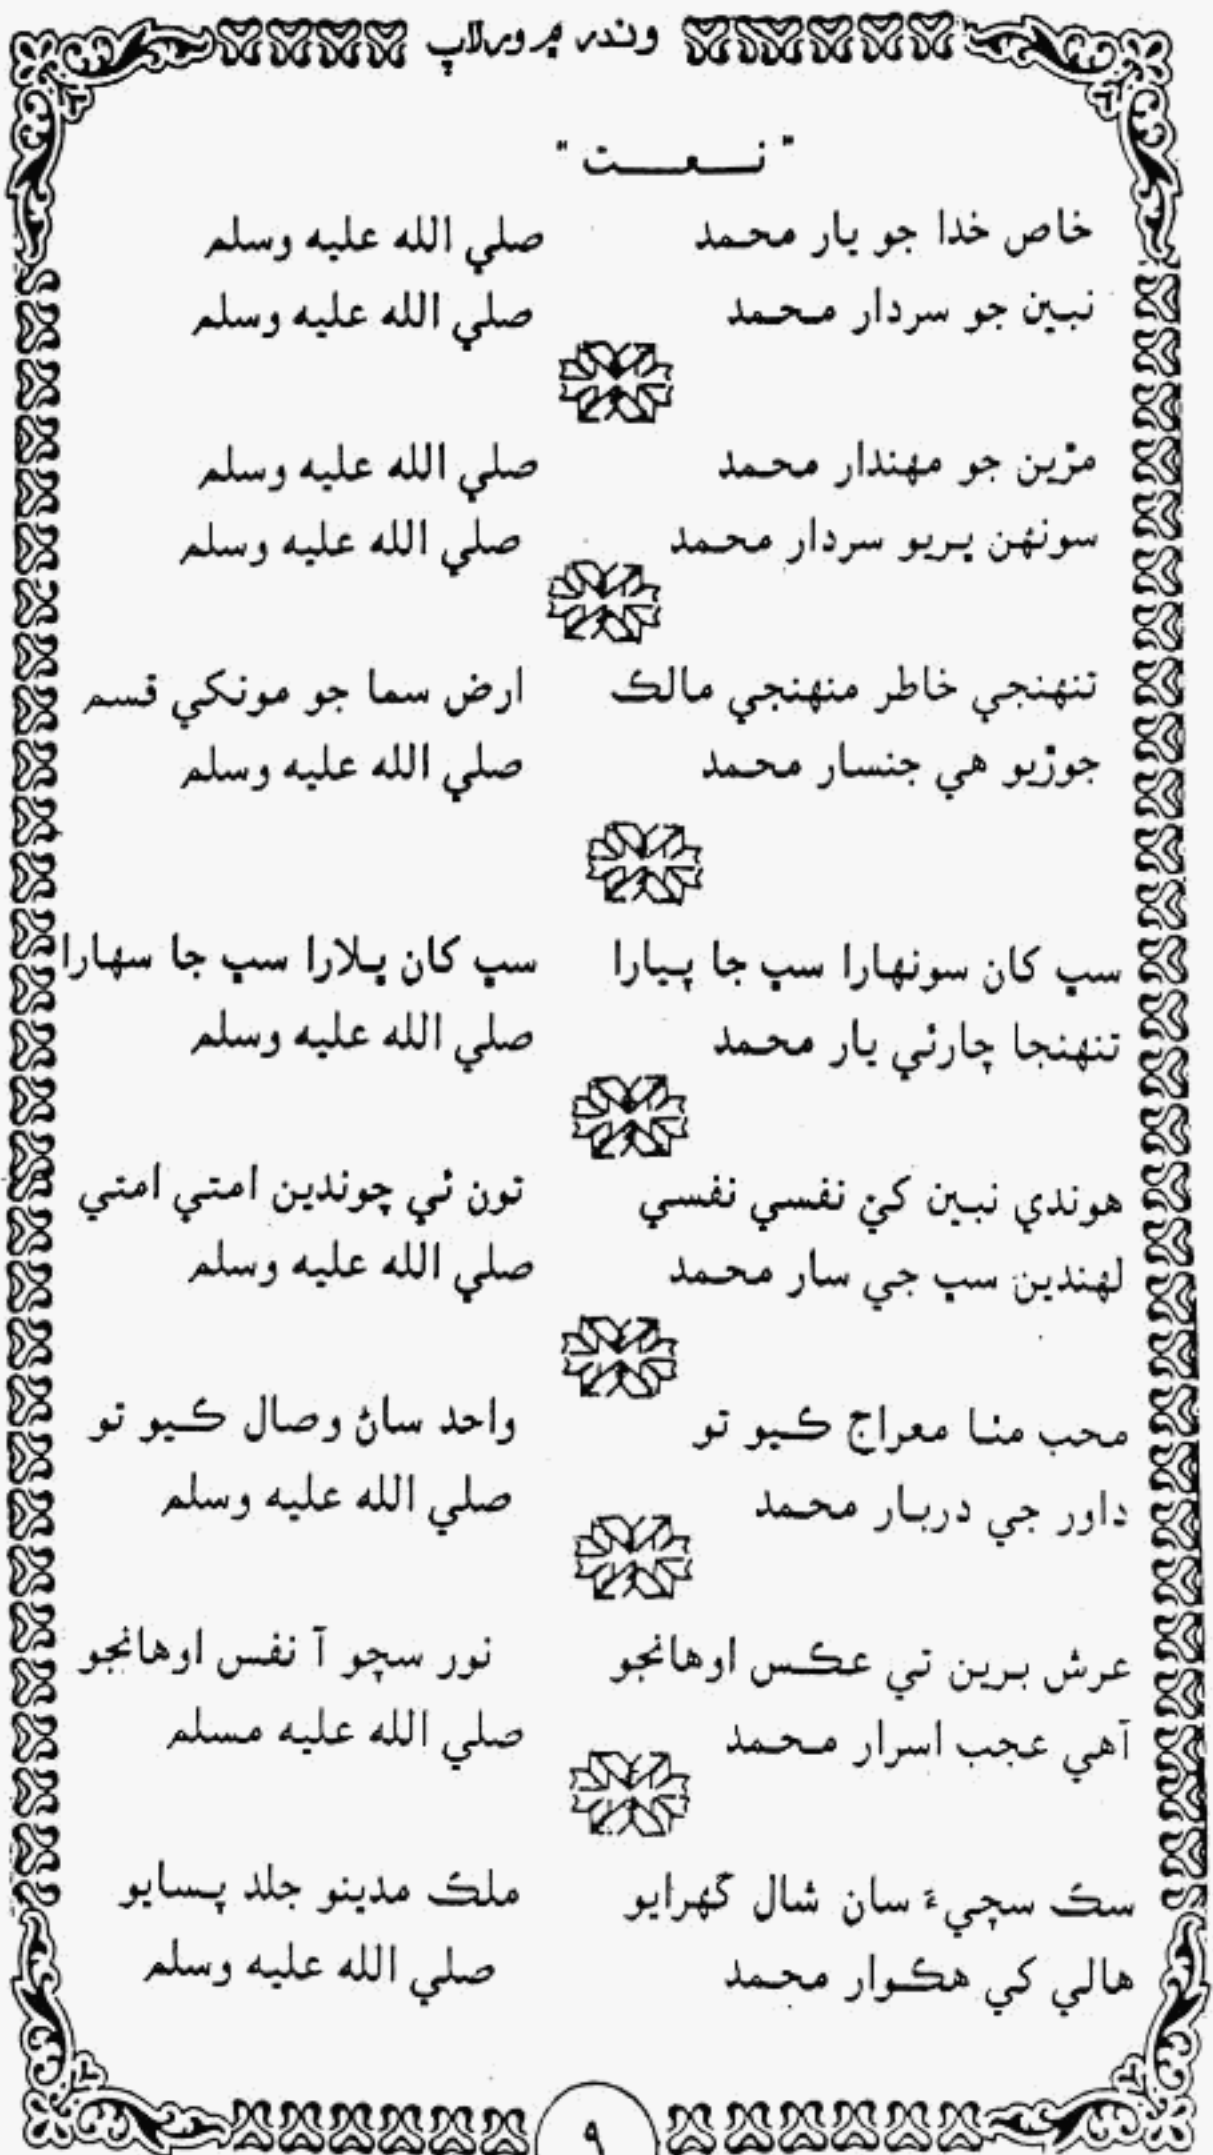 وندر ۾ ورلاپ
" نــعــت "
خاص خدا جو يار محمد صلي الله عليه وسلم
نبين جو سردار محمد صلي الله عليه وسلم
مڙين جو مهندار محمد صلي الله عليه وسلم
سونهن ڀريو سردار محمد صلي الله عليه وسلم
تنهنجي خاطر منهنجي مالڪ ارض سما جو مونکي قسم
جوڙيو هي جنسار محمد صلي الله عليه وسلم
سڀ کان سونهارا سڀ جا پيارا سڀ کان ڀلارا سڀ جا سهارا
تنهنجا چارئي يار محمد صلي الله عليه وسلم
هوندي نبين کي نفسي نفسي تون ئي چوندين امتي امتي
لهندين سڀ جي سار محمد صلي الله عليه وسلم
محب منا معراج ڪيو تو واحد ساڻ وصال ڪيو تو
داور جي دربار محمد صلي الله عليه وسلم
عرش برين تي عڪس اوهانجو نور سچو آ نفس اوهانجو
آهي عجب اسرار محمد صلي الله عليه مسلم
سڪ سچيءَ سان شال گهرايو ملڪ مدينو جلد پسايو
هالي کي هڪوار محمد صلي الله عليه وسلم
۹